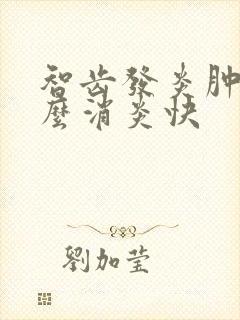 智齿發炎肿
麼消炎快
劉加莹